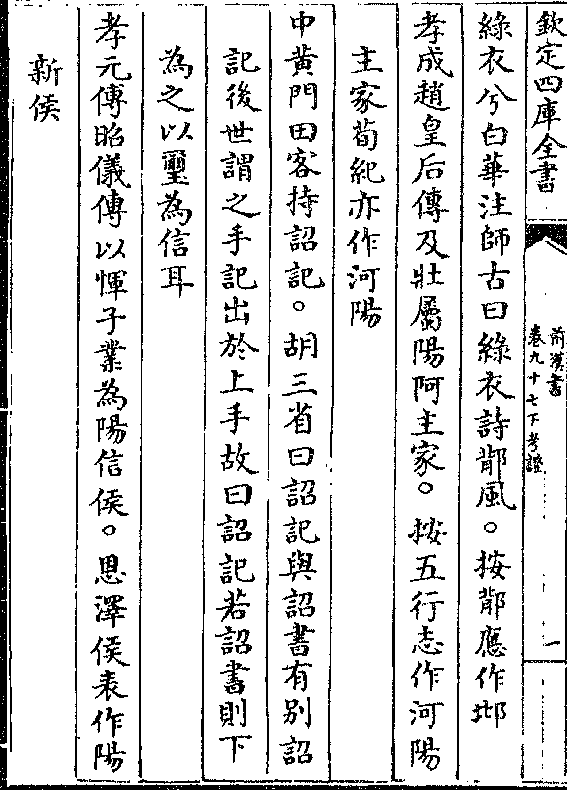 欽定四庫全書
前漢書
卷九十七下考證
一
綠衣兮白華注師古曰綠衣詩鄁風。按鄁應作邶
孝成趙皇后傳及壯屬陽阿主家。按五行志作河陽
主家荀紀亦作河陽
中黃門田客持詔記。胡三省曰詔記與詔書有別詔
記後世謂之手記出於上手故曰詔記若詔書則下
為之以璽為信耳
孝元傅昭儀傳以惲子業為陽信侯。恩澤侯表作陽
新侯